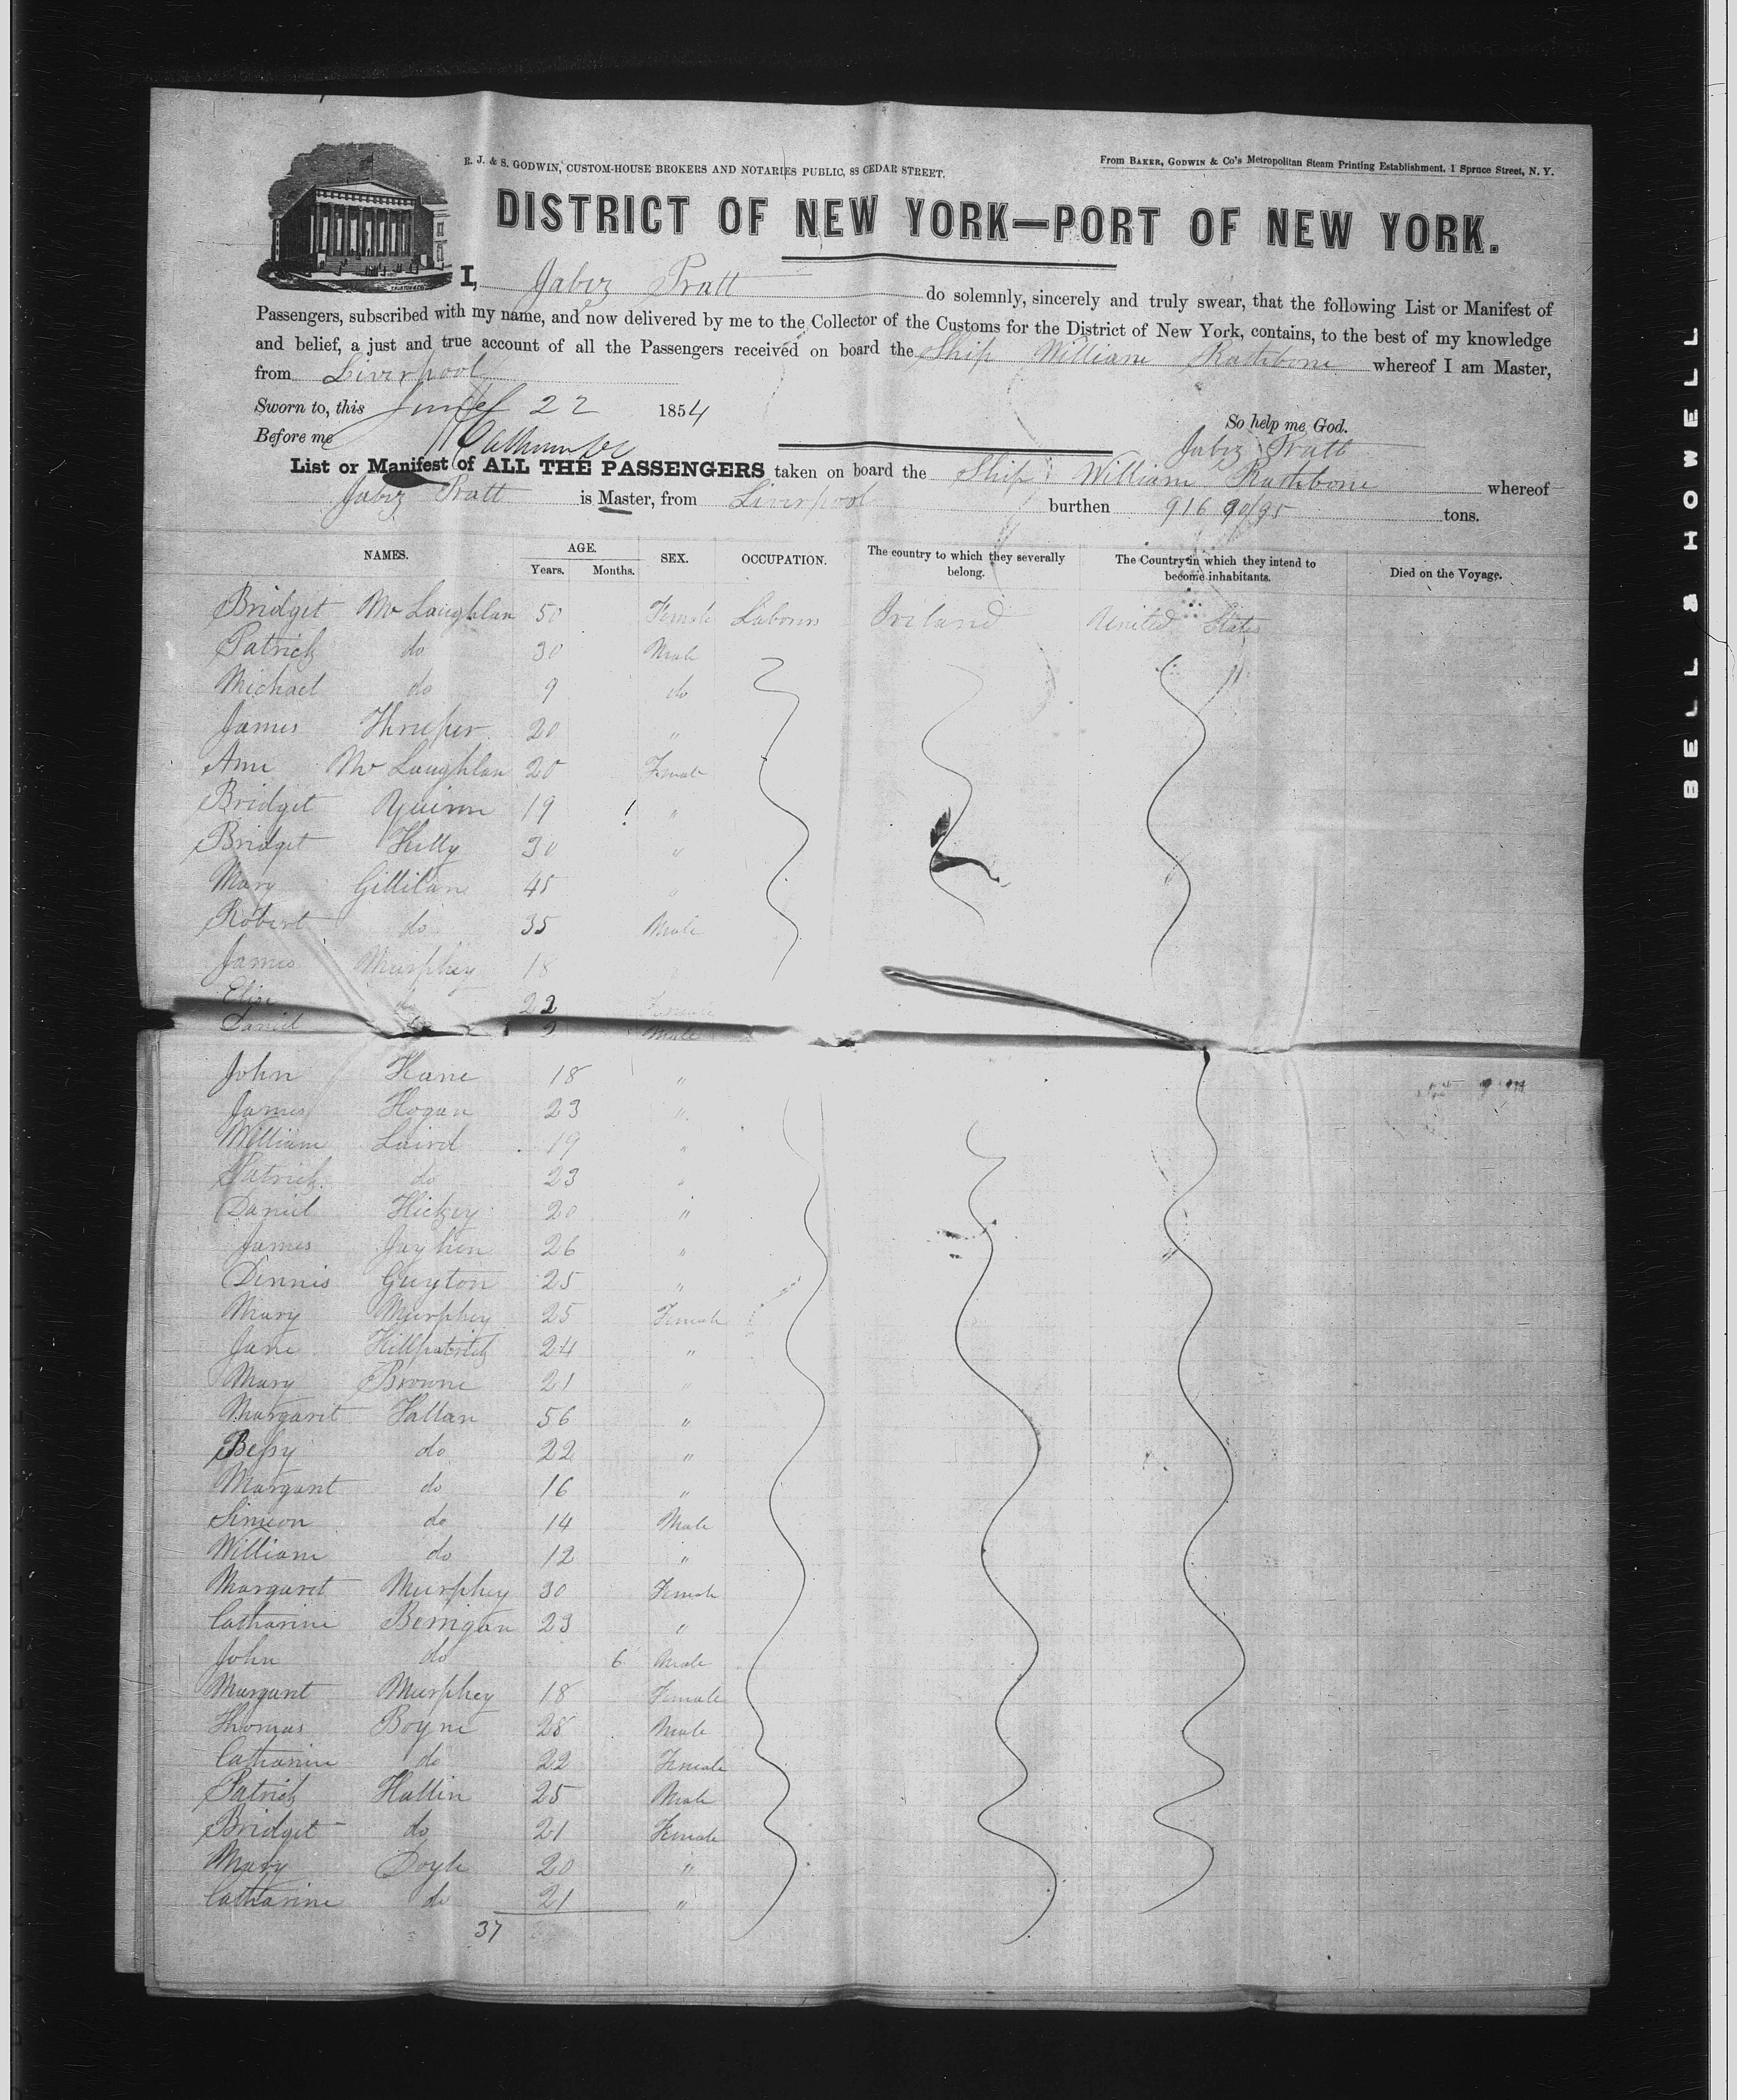 E. J. & S. GODWIN, CUSTOM-HOUSE BROKERS AND NOTARIES PUBLIC, 88 CEDAR STREET.
From BAKER, GODWIN & Co's Metropolitan Steam Printing Establishment, 1 Spruce Street, N. Y.
DISTRICT OF NEW YORK—PORT OF NEW YORK.
I, Jabez Pratt do solemnly, sincerely and truly swear, that the following List or Manifest of
Passengers, subscribed with my name, and now delivered by me to the Collector of the Customs for the District of New York, contains, to the best of my knowledge
and belief, a just and true account of all the Passengers received on board the Ship William Rathbone whereof I am Master,
from Liverpool
Sworn to, this June 22 1854
So help me God.
Before me
Jabez Pratt
List or Manifest of ALL THE PASSENGERS taken on board the Ship William Rathbone whereof
Jabez Pratt is Master, from Liverpool burthen 916 90/95 tons.
NAMES. AGE. SEX. OCCUPATION. The country to which they severally belong. The Country in which they intend to become inhabitants. Died on the Voyage.
Years. Months.
Bridget Mc Laughlan 50 Female Labours Ireland United States
Patrick do 30 Male
Michael do 9 do
James 20 "
Ann Mc Laughlan 20 Female
Bridget Quinn 19 "
Bridget Kelly 30 "
Mary Gillilan 45 "
Robert do 35 Male
James Murphey 18
Eliza do 22 Female
Daniel Male
John Kane 18 "
James Hogan 23 "
William Laird 19 "
Patrick do 23 "
Daniel Hickey 20 "
James 26 "
Dennis Guyton 25 "
Mary Murphey 25 Female
Jane Killpatrick 24 "
Mary Browne 21
Margaret Fallan 56 "
Bessy do 22 "
Margaret do 16 "
Simeon do 14 Male
William do 12 "
Margaret Murphey 30 Female
Catharine Berrigan 23 "
John do 6 Male
Margaret Murphey 18 Female
Thomas Boyne 28 Male
Catharine do 22 Female
Patrick Hallin 25 Male
Bridget do 21 Female
Mary Doyle 20 "
Catharine do 21 "
37
BELL & HOWELL